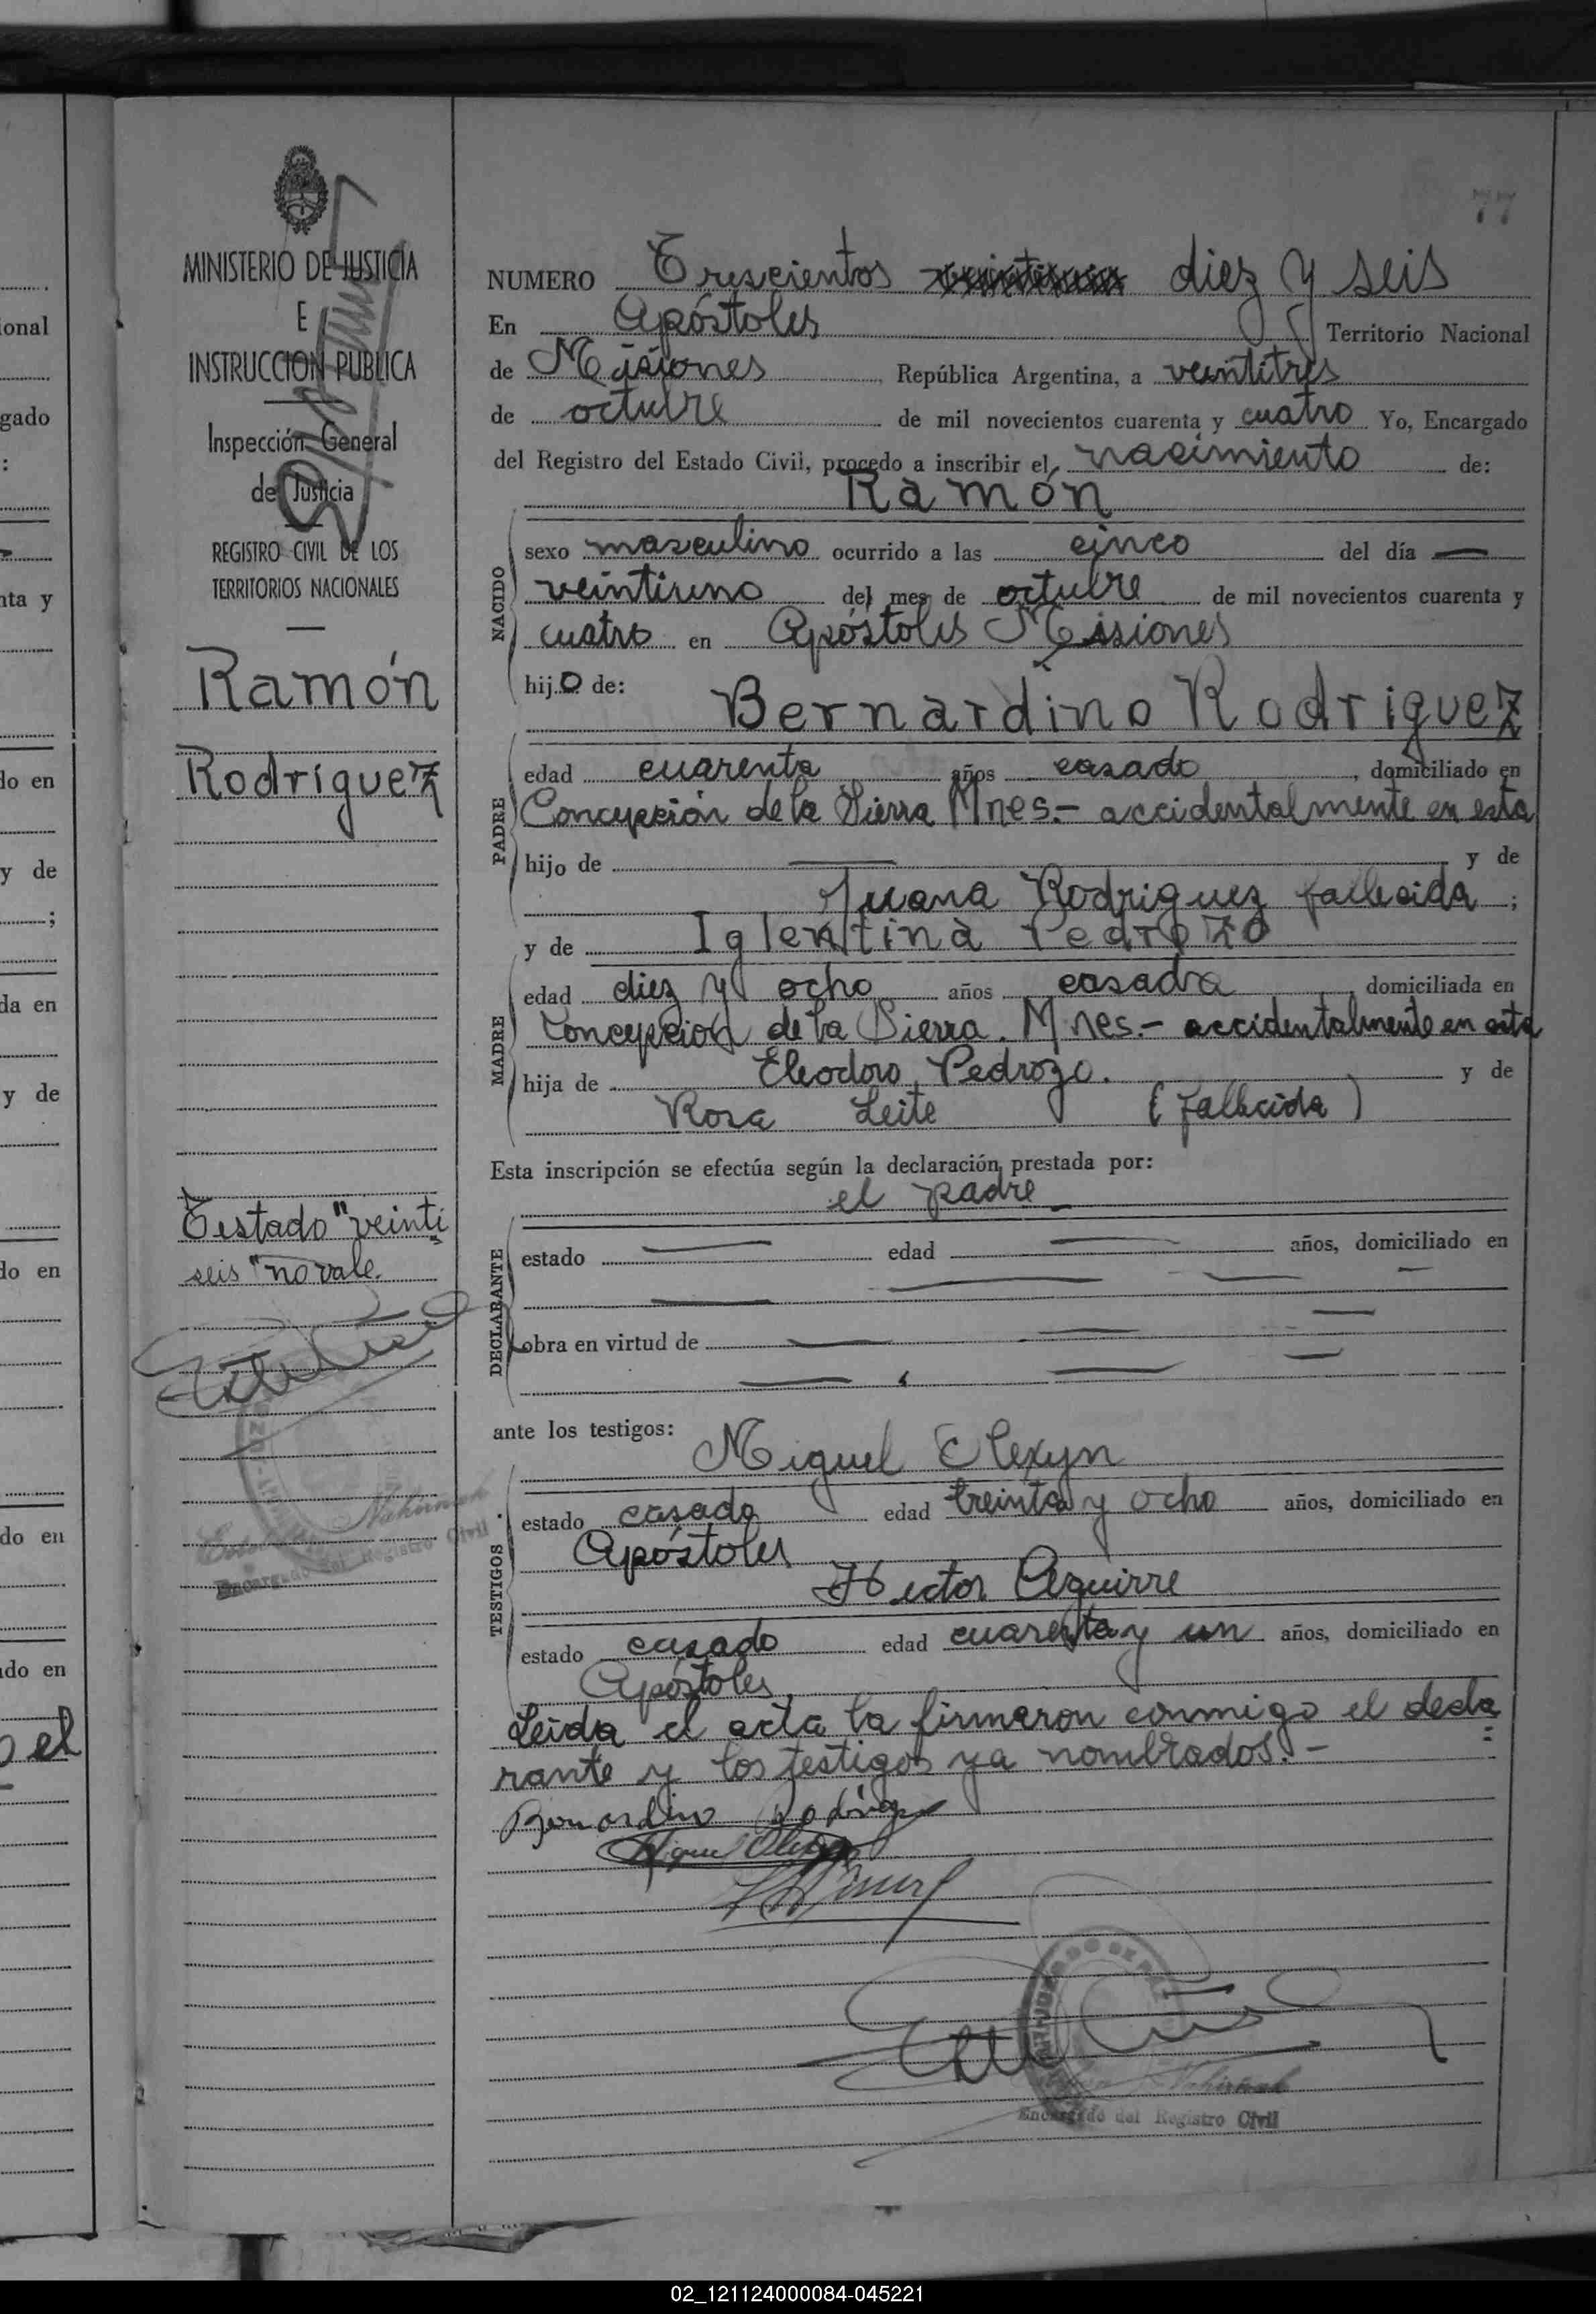 77
MINISTERIO DE JUSTICIA
E
INSTRUCCION PUBLICA
Inspección General
de Justicia
REGISTRO CIVIL DE LOS
TERRITORIOS NACIONALES
Ramón
Rodríguez
Testado "veinti
seis" no vale.
Encargado del Registro Civil
NUMERO Trescientos veintiseis diez y seis
En Apóstoles Territorio Nacional
de Misiones República Argentina, a veintitres
de octubre de mil novecientos cuarenta y cuatro Yo, Encargado
del Registro del Estado Civil, procedo a inscribir el nacimiento de:
Ramón
NACIDO
sexo masculino ocurrido a las cinco del día —
veintiuno del mes de octubre de mil novecientos cuarenta y
cuatro en Apóstoles Misiones
hijo de:
Bernardino Rodriguez
PADRE
edad cuarenta años casado, domiciliado en
Concepción de la Sierra Mnes.- accidentalmente en esta
hijo de — y de
Juana Rodriguez fallecida ;
y de Iglentina Pedrozo
MADRE
edad diez y ocho años casada, domiciliada en
Concepcion de la Sierra. Mnes.- accidentalmente en esta
hija de Eleodoro Pedrozo. y de
Rosa Leite (fallecida)
Esta inscripción se efectúa según la declaración prestada por:
el padre
DECLARANTE
estado — edad — años, domiciliado en
obra en virtud de
ante los testigos:
Miguel Elexyn
TESTIGOS
estado casado edad treinta y ocho años, domiciliado en
Apóstoles
Hector Aguirre
estado casado edad cuarenta y un años, domiciliado en
Apóstoles
Leída el acta la firmaron conmigo el decla
rante y los testigos ya nombrados.-
Bernardino Rodrigue
Encargado del Registro Civil
onal
gado
:
nta y
do en
y de
;
da en
y de
do en
do en
do en
el
02_121124000084-045221